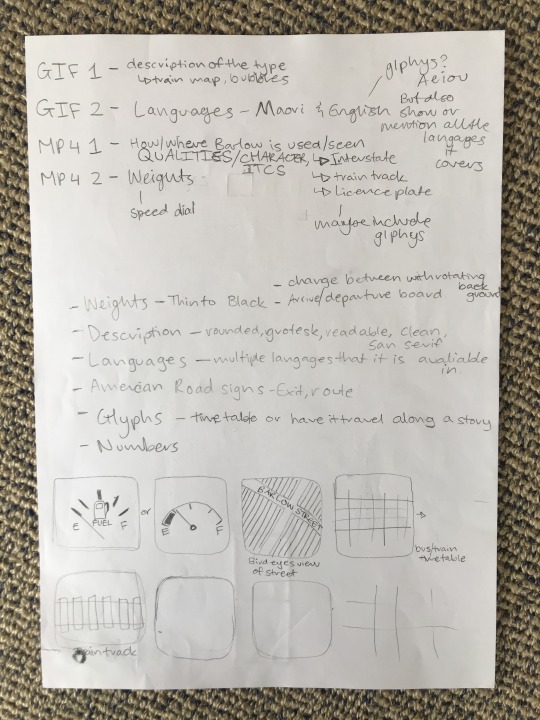 GIF 1 - description of the type
↳ train map, bubbles
glphys?
Aeiou
GIF 2 - Languages - Maori & English
But also
show or
mention all the
langages
it
covers
MP4 1 - How/where Barlow is used/seen
QUALITIES/CHARACTER
ITCS
↳ Interstate
↳ train track
↳ Licence plate
maybe include
glphys
MP4 2 - Weights
speed dial
- Weights - Thin to Black
- change between with rotating
back
ground
- Arrive/departure board
- Description - rounded, grotesk, readable, clean,
san serif
- Languages - multiple langages that it is avaliable
in.
- American Road signs - Exit, route
- Glyphs - time table or have it travel along a story
- Numbers
E FUEL F
or
E F
BARLOW STREET
Bird eyes view
of street
bus/train
timetable
train track